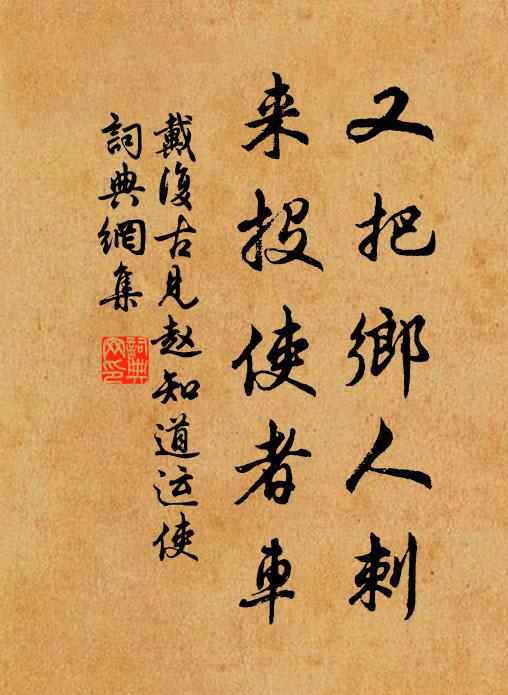 又把鄉人刺
来投使者車
戴復古見赵知道运使
詞典網集
詞典網印